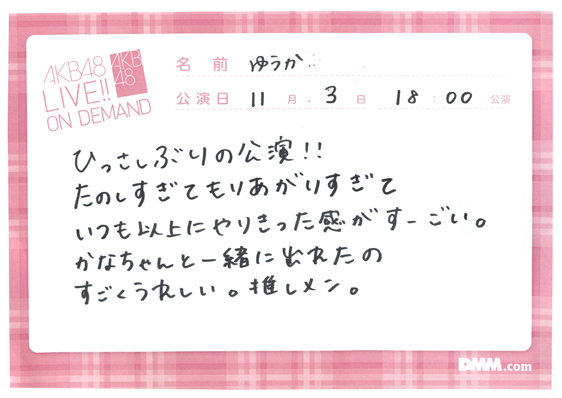 AKB48
LIVE!!
ON DEMAND
AKB
48
名前 ゆうか
公演日 11月 3日 18:00 公演
ひっさしぶりの公演!!
たのしすぎてもりあがりすぎて
いつも以上にやりきった感がすーごい。
かなちゃんと一緒に出れたの
すごくうれしい。推しメン。
DMM.com